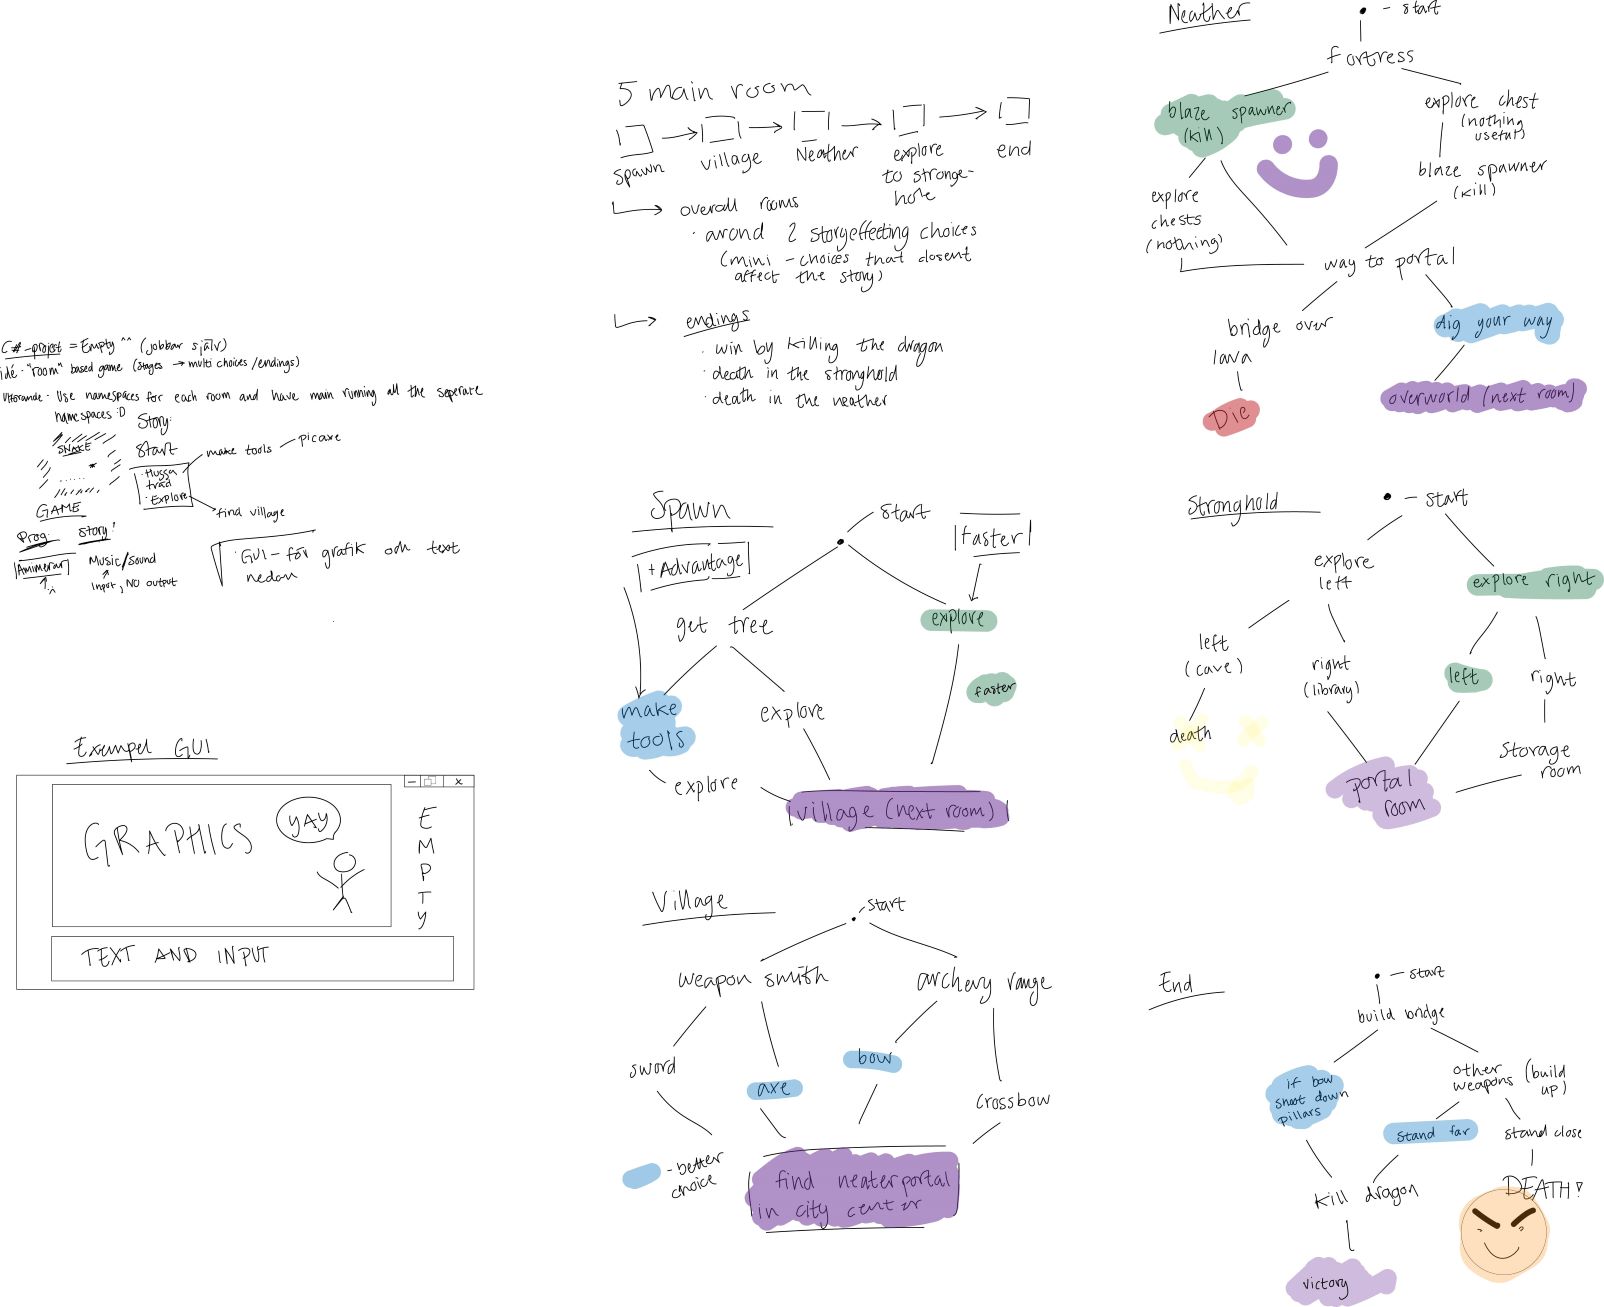 C#-projet = Empty ^^ (jobbar själv)
idé · "room" based game (stages → multi choices /endings)
· Use namespaces for each room and have main running all the seperate
namespaces :D
Story:
SNAKE
GAME
Start
· Hugga
träd
· Explore
make tools
picaxe
find village
Prog.
Story!
Animerar
Music/Sound
Input, NO output
· GUI - för grafik och text
nedan
Exempel GUI
GRAPHICS
YAY
EMPTY
TEXT AND INPUT
5 main room
spawn
village
Neather
explore
to stronge-
hole
end
overall rooms
· arond 2 storyeffecting choices
(mini - choices that dosent
affect the story)
endings
· win by killing the dragon
· death in the stronghold
· death in the neather
Spawn
start
+ Advantage
faster
get tree
explore
make
tools
explore
faster
explore
village (next room)
Village
start
weapon smith
archery range
sword
axe
bow
crossbow
- better
choice
find neaterportal
in city center
Neather
- start
fortress
blaze spawner
(kill)
explore chest
(nothing
useful)
blaze spawner
(kill)
explore
chests
(nothing)
way to portal
bridge over
lava
dig your way
Die
overworld (next room)
Stronghold
- start
explore
left
explore right
left
(cave)
right
(library)
left
right
death
portal
room
Storage
room
End
- start
build bridge
if bow
shoot down
pillars
other
weapons (build
up)
stand far
stand close
kill dragon
DEATH!
victory